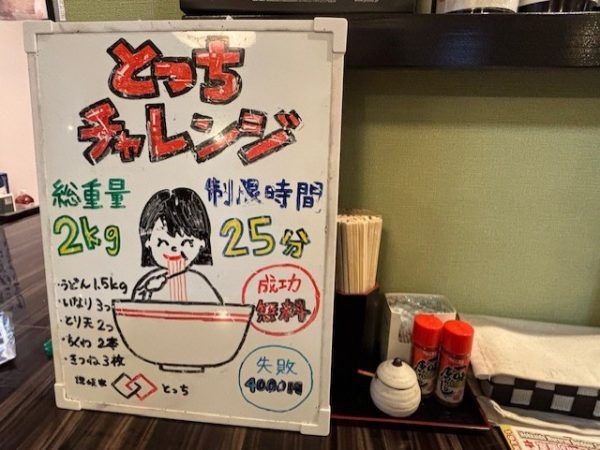 とっち
チャレンジ
総重量
2kg
制限時間
25分
・うどん1.5kg
・いなり3つ
・とり天2つ
・ちくわ2本
・きつね3枚
成功
無料
失敗
4000円
讃岐家
とっち